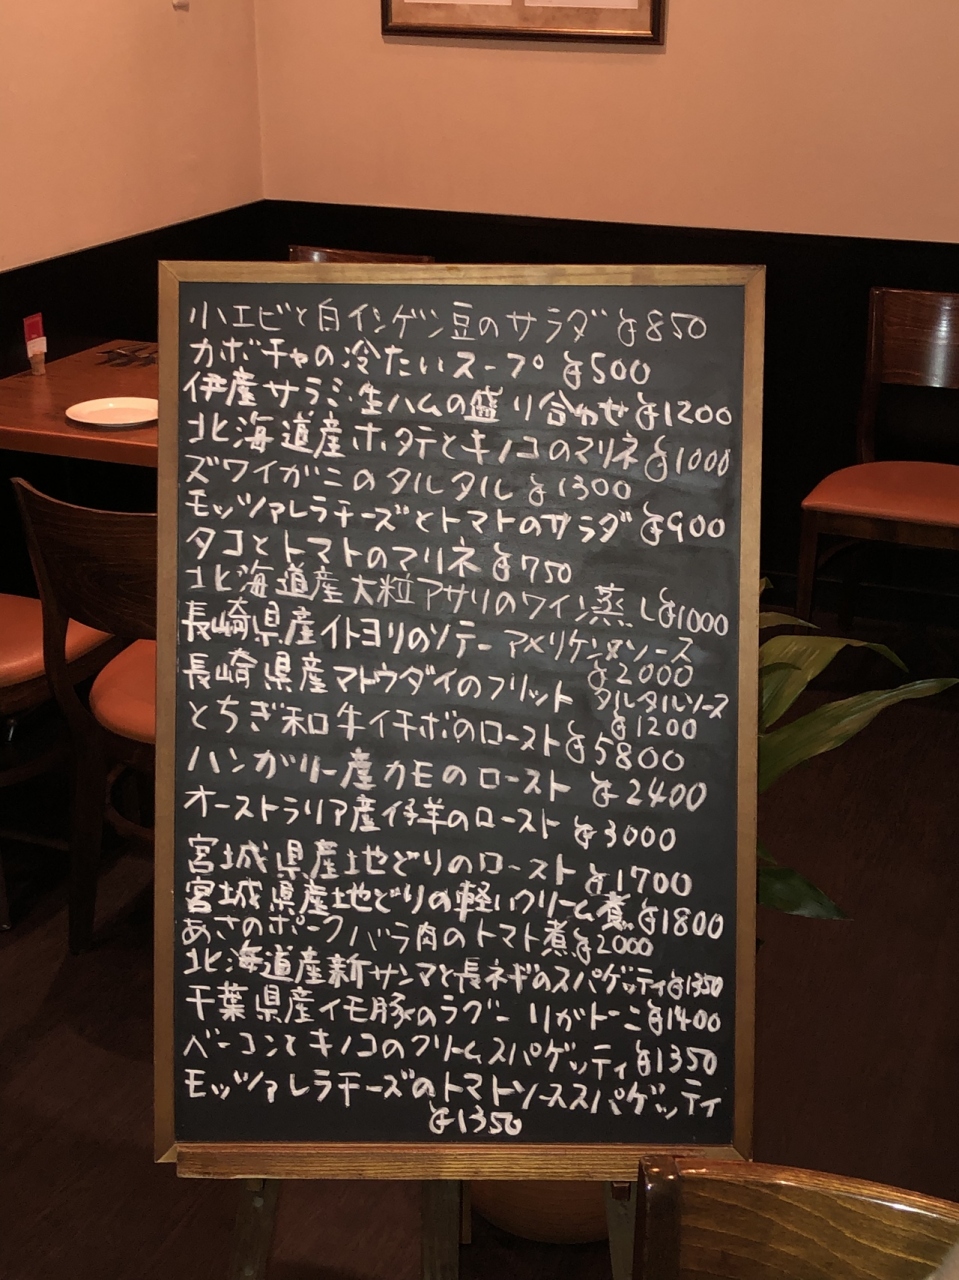 小エビと白インゲン豆のサラダ ¥850
カボチャの冷たいスープ ¥500
伊産サラミ生ハムの盛り合わせ ¥1200
北海道産ホタテとキノコのマリネ ¥1000
ズワイガニのタルタル ¥1300
モッツァレラチーズとトマトのサラダ ¥900
タコとトマトのマリネ ¥750
北海道産大粒アサリのワイン蒸し ¥1000
長崎県産イトヨリのソテー アメリケンヌソース
¥2000
長崎県産マトウダイのフリット タルタルソース
¥1200
とちぎ和牛イチボのロースト ¥5800
ハンガリー産カモのロースト ¥2400
オーストラリア産仔羊のロースト ¥3000
宮城県産地どりのロースト ¥1700
宮城県産地どりの軽いクリーム煮 ¥1800
あさのポークバラ肉のトマト煮 ¥2000
北海道産新サンマと長ネギのスパゲッティ ¥1350
千葉県産イモ豚のラグー リガトーニ ¥1400
ベーコンとキノコのクリームスパゲッティ ¥1350
モッツァレラチーズのトマトソーススパゲッティ
¥1350